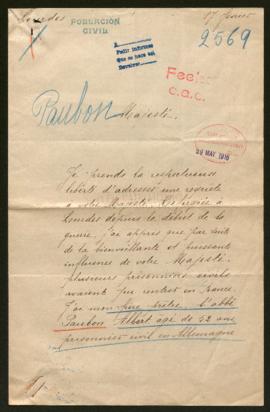 Lourdes
17 février
POBLACIÓN
CIVIL
2569
Pedir informes
Paubon
Majesté.
29 MAY 1916
Je prends la respectueuse
liberté d'adresser une requête
à votre Majesté. Réfugiée à
Lourdes depuis le début de la
guerre, j'ai appris que par suite
de la bienveillante et puissante
influence de votre Majesté,
plusieurs prisonniers civils
avaient pu rentrer en France.
J'ai mon frère l'abbé
Paubon Albert âgé de 42 ans
prisonnier civil en Allemagne